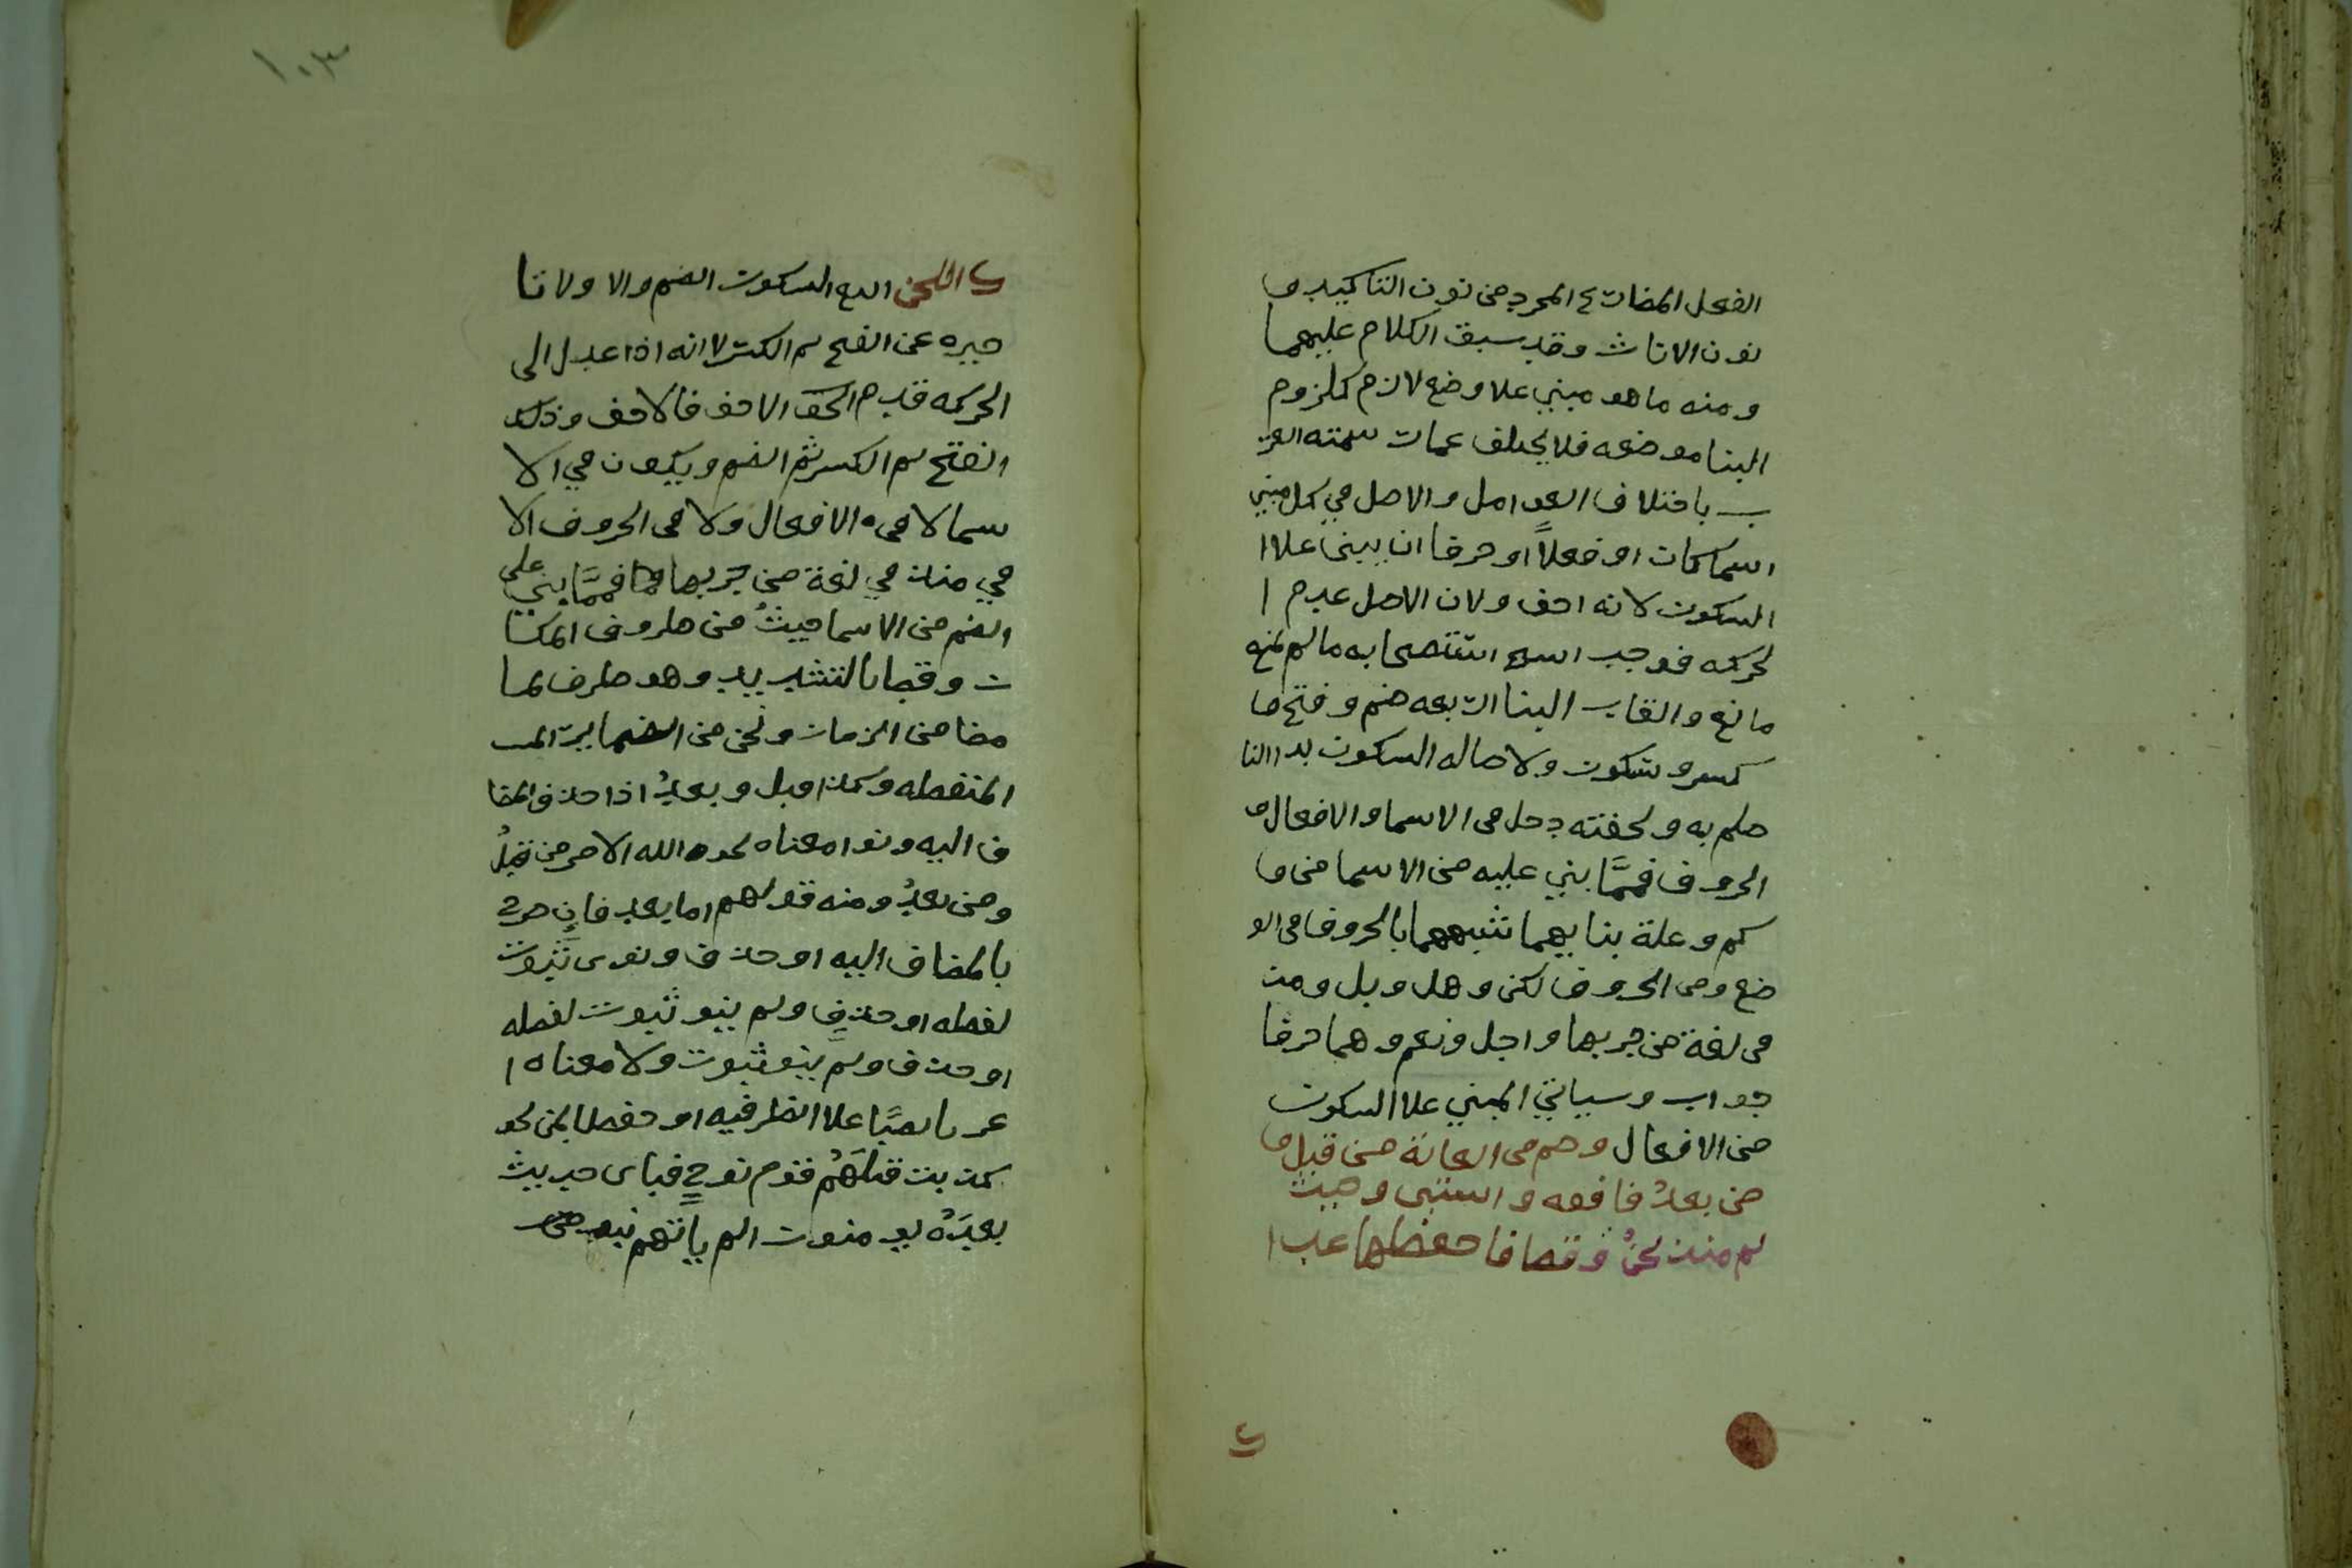 الفعل المضارع المجرد من نون التاكيد و
نون الاناث وقد سبق الكلام عليهما
ومنه ما هو مبني علا وضع لازم كلزوم
البنا موضعه فلا يختلف عمات سمته العر
ب باختلاف العوامل والاصل في كل مبني
اسما كان او فعلاً او حرفا ان يبنى علا ا
السكون لانه اخف ولان الاصل عدم ا
لحركه فوجب استتصحابه ما لم يمنع
مانع والقاب البنا اربعه ضم وفتح و
كسر وسكون ولاصاله السكون بدا النا
ظم به ولخفته دخل في الاسما والافعال و
الحروف فممَّا بني عليه من الاسما من و
كم وعلة بنايهما شبههما بالحروف في الو
ضع ومن الحروف لكن وهل وبل ومذ
في لغة من جر بها واجل ونعم وهما حرفا
جواب وسياتي المبني علا السكون
من الافعال وضم في الغاية من قبل و
من بعدُ فافعه واستبن وحيث
ثم منذ نحنُ وقط فاحفظها عد ا
ك
ك اللحن السكون الضم والاولا تا
خيره عن الفتح ثم الكسر لانه اذا عدل الى
الحركه قدم الاخف فالاخف وذلك
الفتح ثم الكسر ثم الضم ويكون في الا
سما لا في الافعال ولا في الحروف الا
في منذ في لغة من جر بها فممَّا بني على
الضم من الاسما حيثُ من ظروف المكا
ن وقط بالتشديد وهو ظرف لما
مضا من الزمان ونحن من الضماير
المنفصله وكذا قبل وبعدُ اذا حذف المضا
ف اليه ونوا معناه نحو لله الامر من قبلُ
ومن بعدُ ومنه قولهم اما بعد فان صرح
بالمضاف اليه او حذف ونوى ثبوت
لفظه او حذف ولم ينو ثبوت لفظه
او حذف ولم ينو ثبوت ولا معناه ا
عربا نصبًا علا الظرفيه او خفضا بمن نحو
كذبت قبلَهُم قوم نوحٍ فباى حديث
بعدَهُ يومنون الم ياتهم نبو من
١٠٣